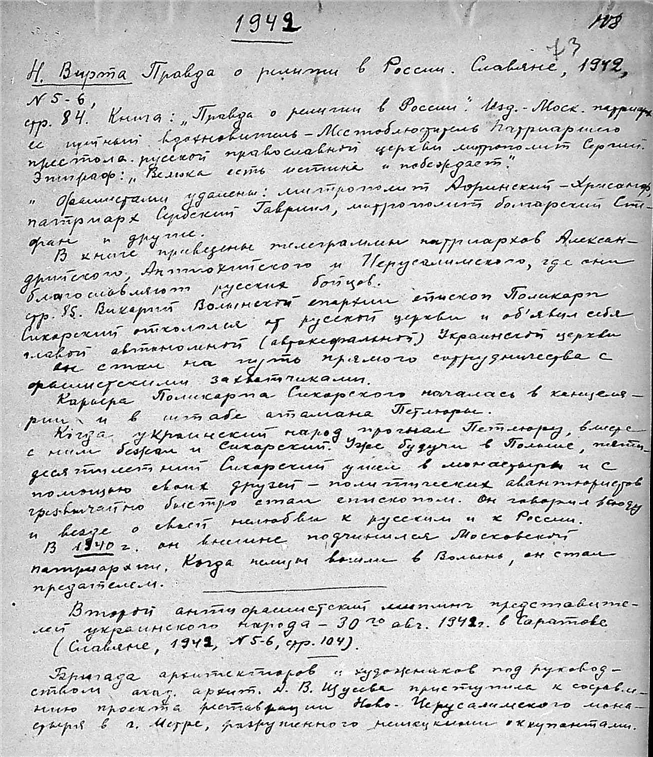 1942
108
73
Н. Вирта Правда о религии в России. Славяне, 1942,
N 5-6,
стр. 84. Книга: „Правда о религии в России". Изд.- Моск. патриарх
ее идейный вдохновитель - Местоблюститель Патриаршего
престола русской православной церкви митрополит Сергий.
Эпиграф: „Велика есть истина и побеждает".
„ Фашистами удалены: митрополит Афинский - Хрисанф,
патриарх Сербский Гавриил, митрополит болгарский Сте-
фан и другие.
В книге приведены телеграммы патриархов Алексан-
дрийского, Антиохийского и Иерусалимского, где они
благославляют русских бойцов.
стр. 85. Викарий Волынской епархии епископ Поликарп
Сикорский откололся от русской церкви и об'явил себя
главой автономной (автокефальной) Украинской церкви
он стал на путь прямого сотрудничества с
фашистскими захватчиками.
Карьера Поликарпа Сикорского началась в канцеля-
рии и в штабе атамана Петлюры.
Когда украинский народ прогнал Петлюру, вместе
с ним бежал и Сикорский. Уже будучи в Польше, пяти-
десятилетний Сикорский ушел в монастырь и с
помощью своих друзей - политических авантюристов
чрезвычайно быстро стал епископом. Он говорил всюду
и везде о своей нелюбви к русским и к России.
В 1940 г. он внешне подчинился Московской
патриархии. Когда немцы вошли в Волынь, он стал
предателем.
Второй антифашистский митинг представите-
лей украинского народа - 30 го авг. 1942 г. в Саратове
(Славяне, 1942, N 5-6, стр. 104).
Бригада архитекторов и художников под руковод-
ством акад. архит. А. В. Щусева приступила к составле-
нию проекта реставрации Ново-Иерусалимского мона-
стыря в г. Истре, разрушенного немецкими оккупантами.